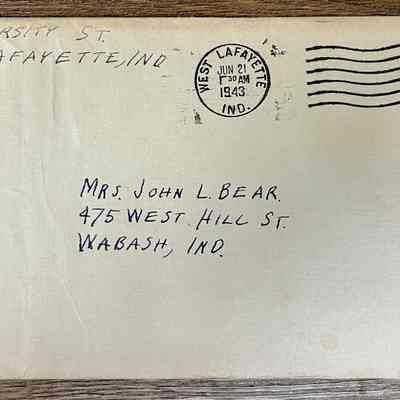 RSITY ST.
AFAYETTE, IND
WEST LAFAYETTE
JUN 21
1 30 AM
1943
IND.
MRS. JOHN L. BEAR.
475 WEST HILL ST.
WABASH, IND.